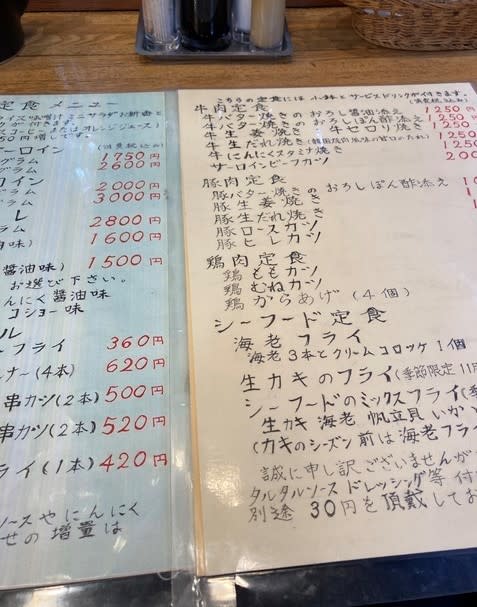 定食メニュー
ライス味噌汁ミニサラダお新香と
クが付きます。
スコーヒーまたはオレンジジュース)
50円増しです。
ーロイン (消費税込み)
グラム 1750円
グラム 2600円
ロイン
ラム 2000円
ラム 3000円
レ 2800円
味) 1600円
醤油味) 1500円
お選び下さい。
んにく醤油味
コショー味
ル
ーフライ 360円
ナー(4本) 620円
串カツ(2本) 500円
串カツ(2本) 520円
ライ(1本) 420円
ソースやにんにく
せの増量は
こちらの定食には小鉢とサービスドリンクが付きます。
(消費税込み)
牛肉定食
牛バター焼きのおろし醤油添え 1250円
牛バター焼きのおろしぽん酢添え 1250
牛生姜焼き 牛セロリ焼き 1250
牛生だれ焼き 1250
牛にんにくスタミナ焼き 1250
サーロインビーフカツ 200
豚肉定食
豚バター焼きのおろしぽん酢添え
豚生姜焼き
豚生だれ焼き
豚ロースカツ
豚ヒレカツ
鶏肉定食
鶏ももカツ
鶏むねカツ
鶏からあげ(4個)
シーフード定食
海老フライ
海老3本とクリームコロッケ1個
生カキのフライ(季節限定11月
シーフードのミックスフライ(季
生カキ 海老 帆立貝 いか
(カキのシーズン前は海老フラ
誠に申し訳ございませんが
タルタルソース ドレッシング等 付
別途 30円を頂戴してお